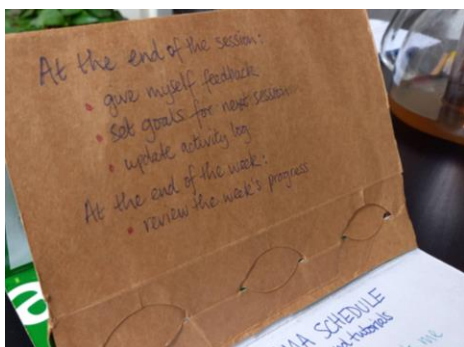 At the end of the session:
• give myself feedback
• set goals for next session
• update activity log
At the end of the week:
• review the week's progress
SCHEDULE
tutorials
me